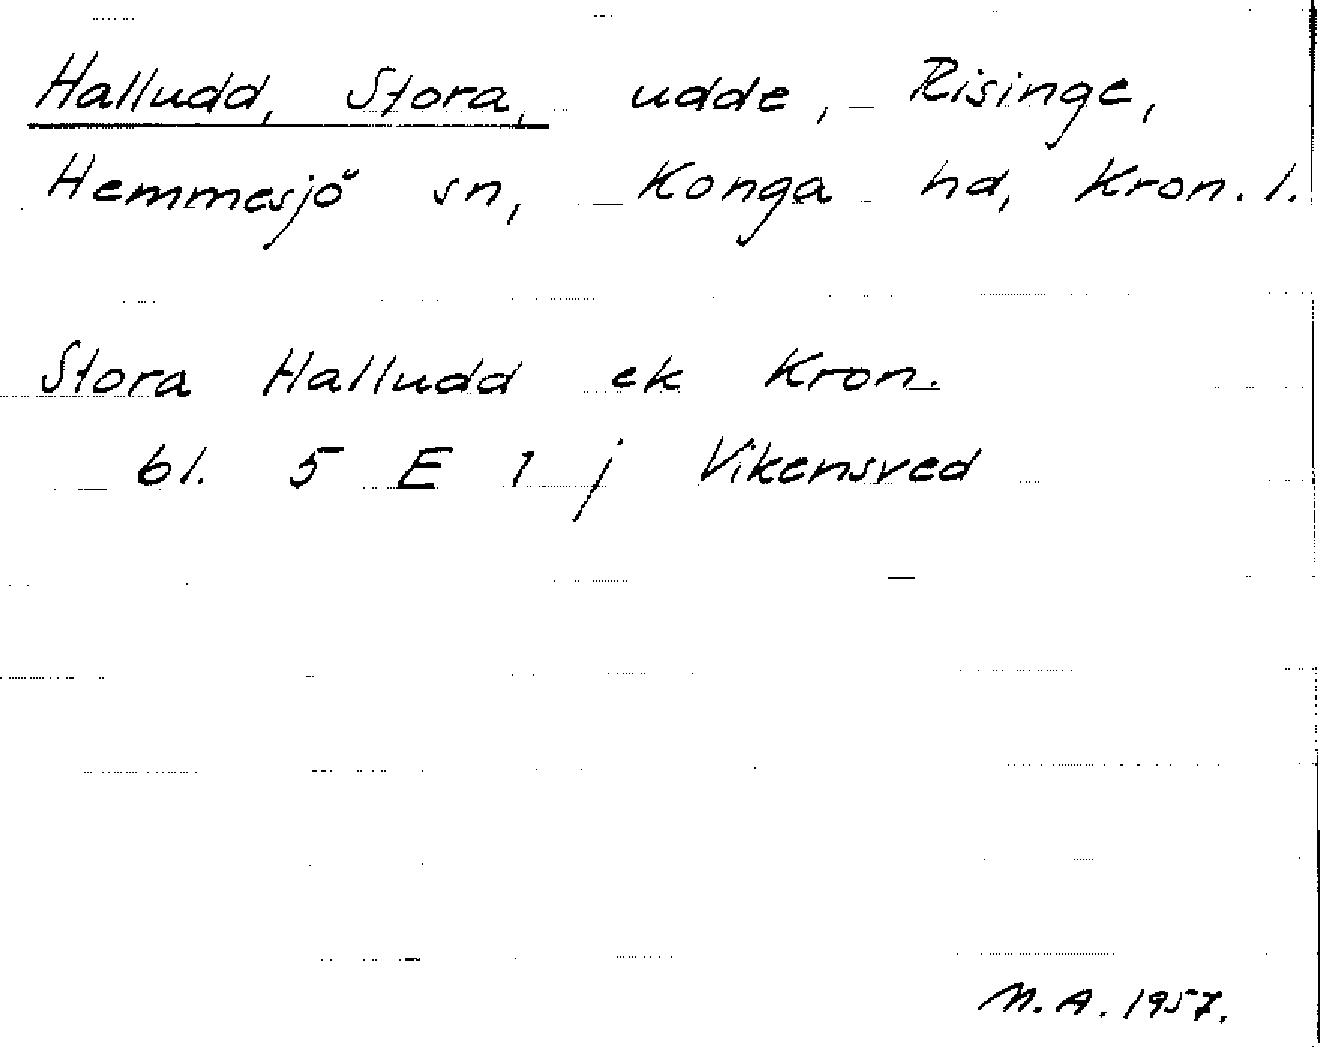 Halludd, Stora, udde, Risinge,
Hemmesjö sn, Konga hd, Kron. l.
Stora Halludd ek Kron.
bl. 5 E 1 j Vikensved
M.A. 1957.